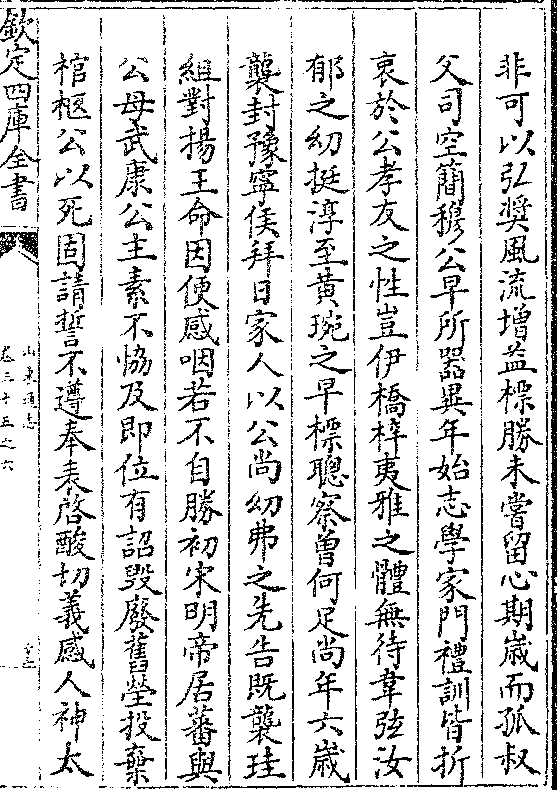 非可以弘奬風流增益標勝未嘗留心期嵗而孤叔
父司空簡穆公早所器異年始志學家門禮訓皆折
衷於公孝友之性豈伊橋梓夷雅之體無待韋弦汝
郁之幼挺淳至黄琬之早標聰察曾何足尚年六嵗
襲封豫寧侯拜日家人以公尚幼弗之先告既襲珪
組對揚王命因便感咽若不自勝初宋明帝居蕃與
公母武康公主素不恊及即位有詔毁廢舊塋投棄
棺柩公以死固請誓不遵奉表啓酸切義感人神太
欽定四庫全書
山東通志
卷三十五之六